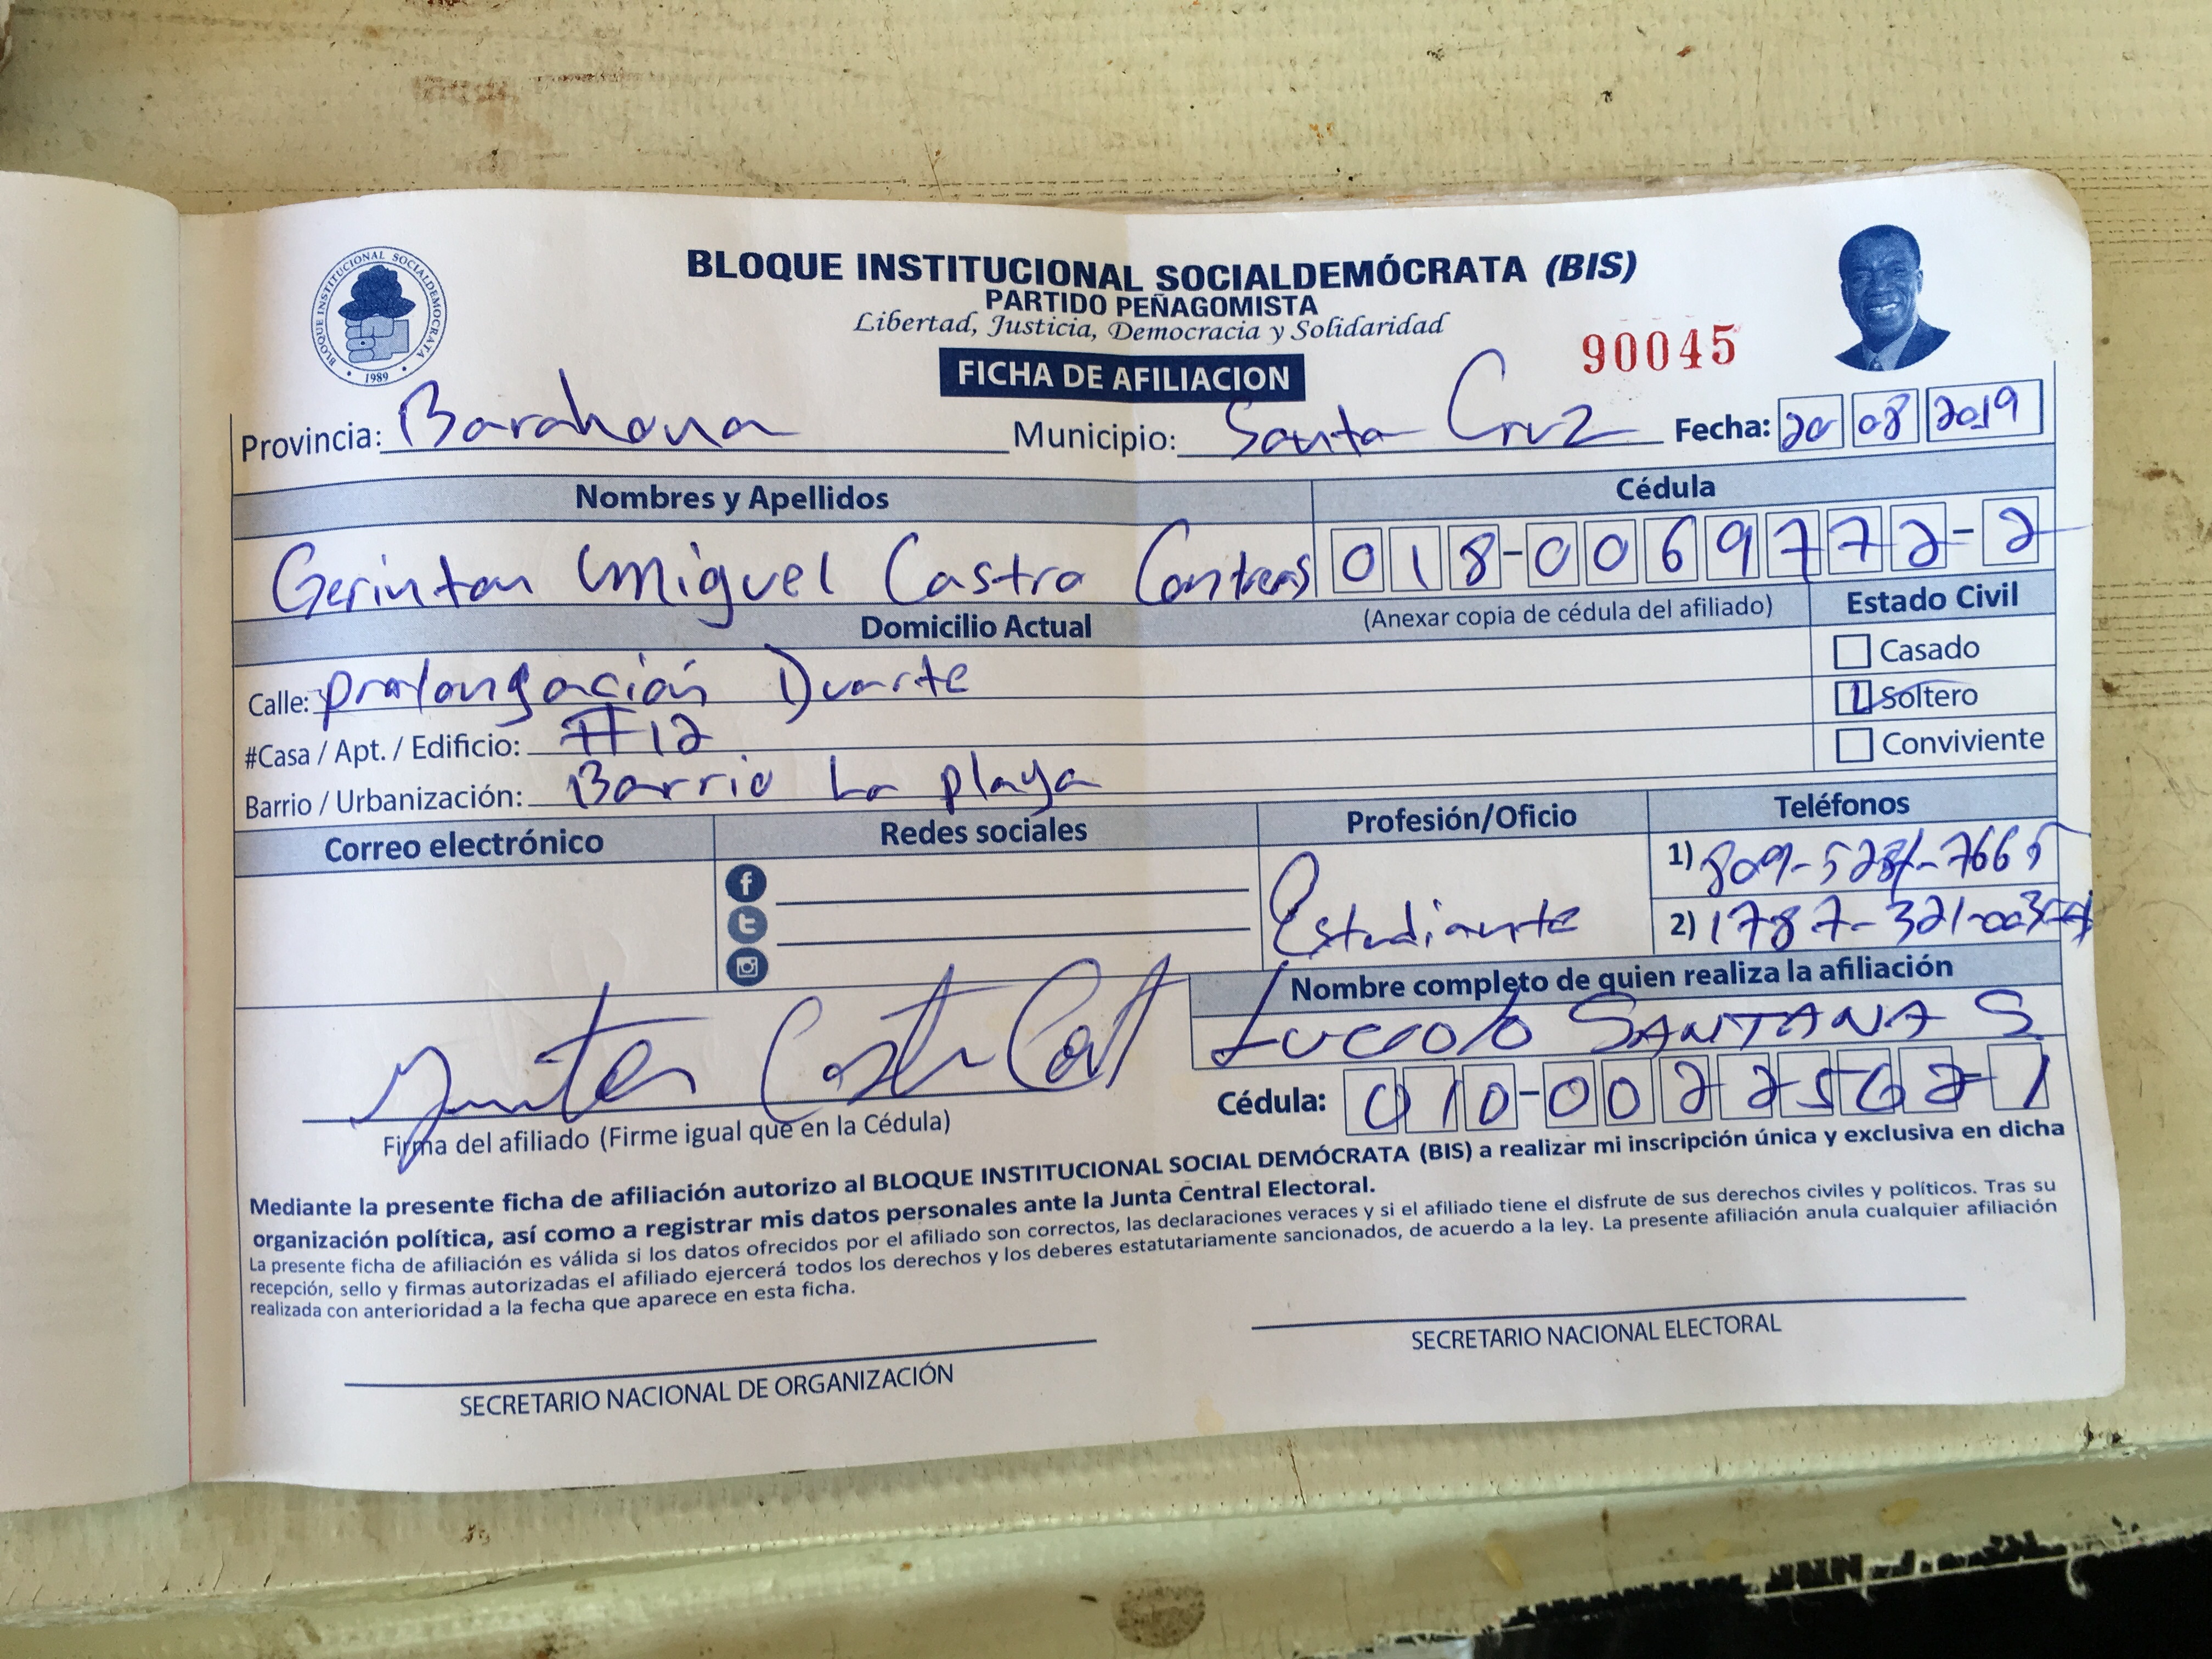 BLOQUE INSTITUCIONAL SOCIALDEMOCRATA
1989
BLOQUE INSTITUCIONAL SOCIALDEMÓCRATA (BIS)
PARTIDO PEÑAGOMISTA
Libertad, Justicia, Democracia y Solidaridad
FICHA DE AFILIACION
90045
Provincia: Barahona Municipio: Santa Cruz Fecha: 20 08 2019
Nombres y Apellidos Cédula
Gerinton Miguel Castro Contreras 018-0069772-2
Domicilio Actual (Anexar copia de cédula del afiliado) Estado Civil
Calle: prolongación Duarte
#Casa / Apt. / Edificio: #12
Barrio / Urbanización: Barrio La playa
Casado
Soltero
Conviviente
Correo electrónico Redes sociales Profesión/Oficio Teléfonos
Estudiante
1) 809-
2) 1787-321-
Nombre completo de quien realiza la afiliación
SANTANA S
Cédula: 010-0022562-1
Firma del afiliado (Firme igual que en la Cédula)
Mediante la presente ficha de afiliación autorizo al BLOQUE INSTITUCIONAL SOCIAL DEMÓCRATA (BIS) a realizar mi inscripción única y exclusiva en dicha
organización política, así como a registrar mis datos personales ante la Junta Central Electoral.
La presente ficha de afiliación es válida si los datos ofrecidos por el afiliado son correctos, las declaraciones veraces y si el afiliado tiene el disfrute de sus derechos civiles y políticos. Tras su
recepción, sello y firmas autorizadas el afiliado ejercerá todos los derechos y los deberes estatutariamente sancionados, de acuerdo a la ley. La presente afiliación anula cualquier afiliación
realizada con anterioridad a la fecha que aparece en esta ficha.
SECRETARIO NACIONAL DE ORGANIZACIÓN
SECRETARIO NACIONAL ELECTORAL